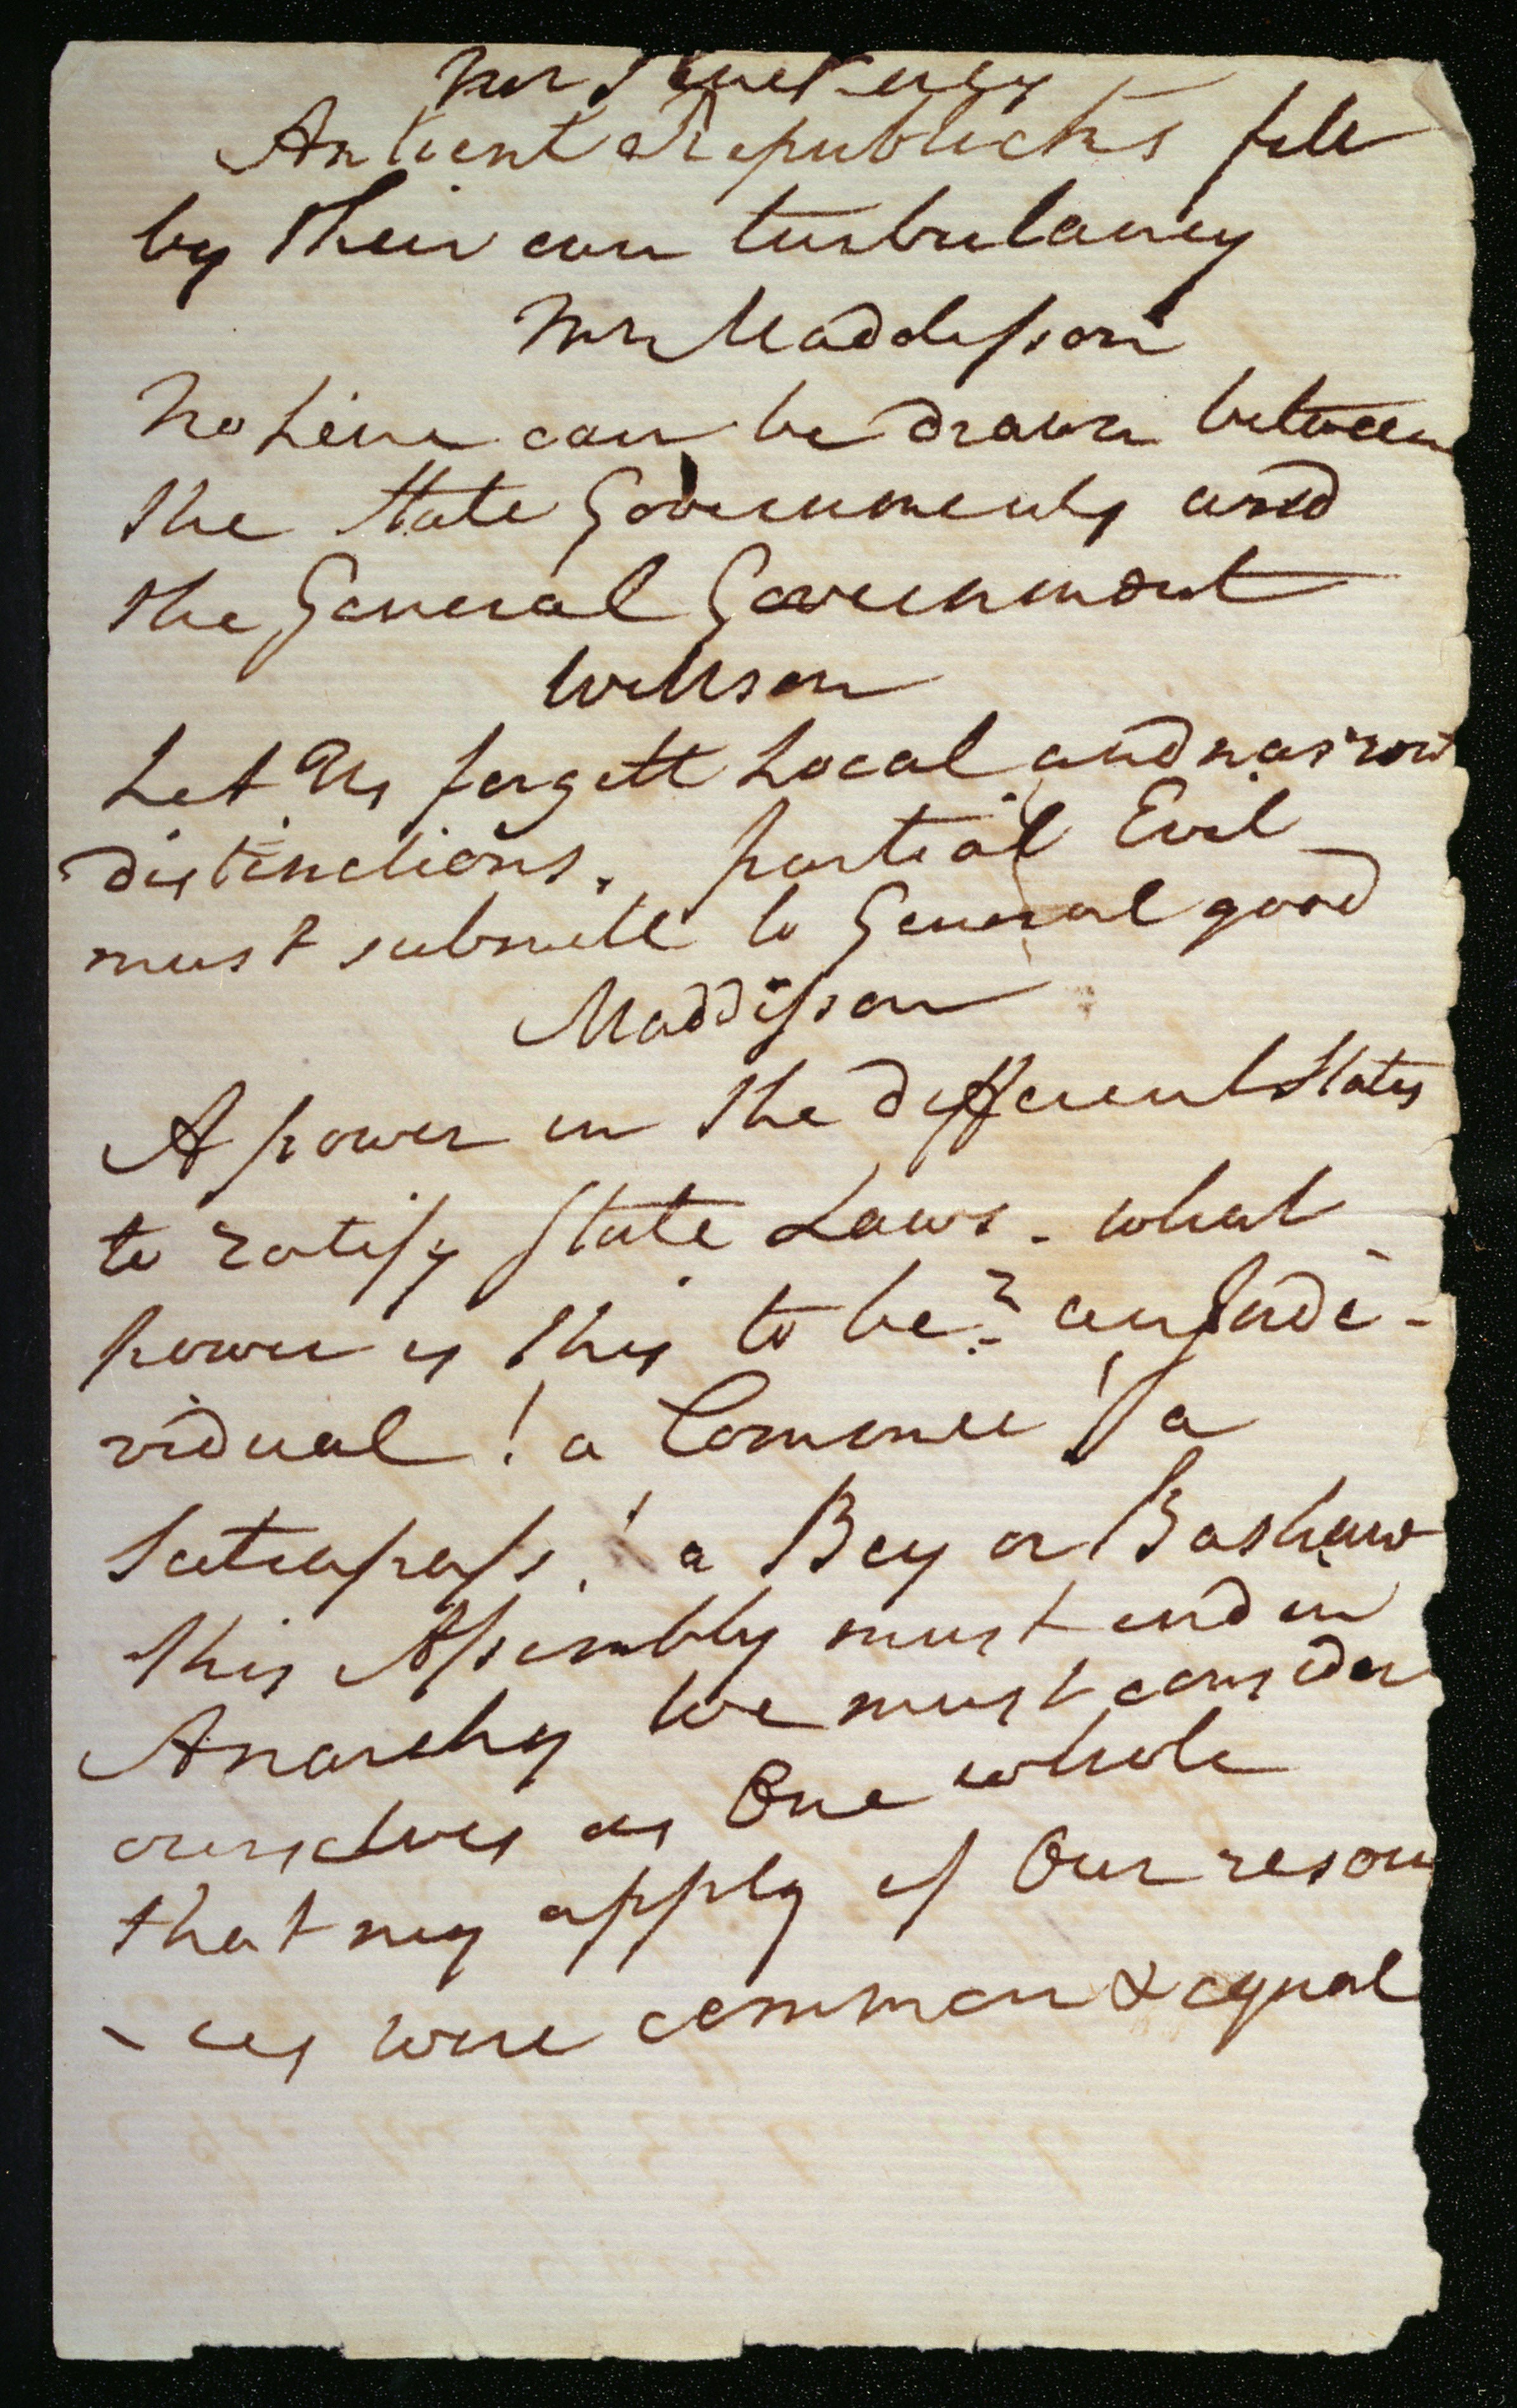 Mr Pinckney
Antient Republicks fell
by their own turbulancy
Mr Maddisson
No Line can be drawn between
the State Governments and
the General Government
Willson
Let Us forgett Local and narrow
distinctions. partial Evil
must submitt to General good
Maddisson
A power in the different States
to ratify State Laws - what
power is this to be? an Indi-
vidual! a Commee! a
Satrapass! a Bey or Bashaw
this Assembly must end in
Anarchy We must consider
ourselves as One whole
that my apply if Our resou
- ces were common & equal